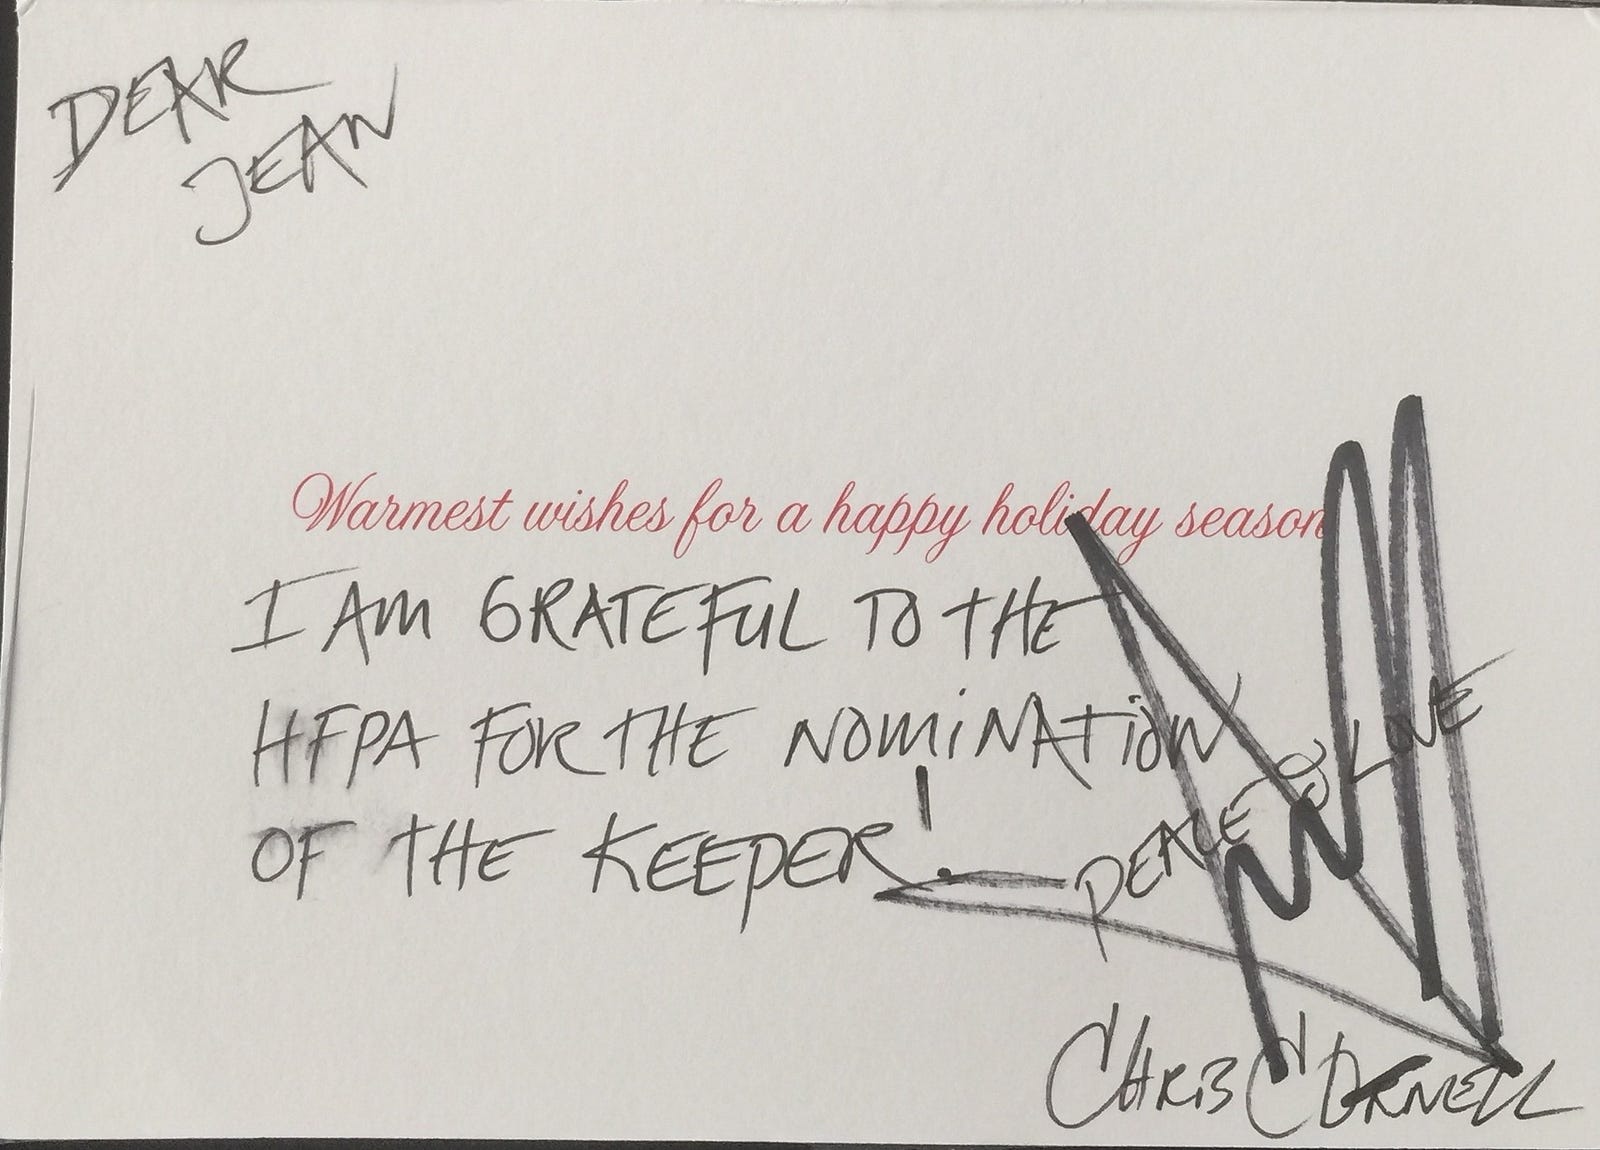 DEAR
JEAN
Warmest wishes for a happy holiday season
I AM GRATEFUL TO THE
HFPA FOR THE NOMINATION
OF THE KEEPER!
PEACE & LOVE
CHRIS CORNELL